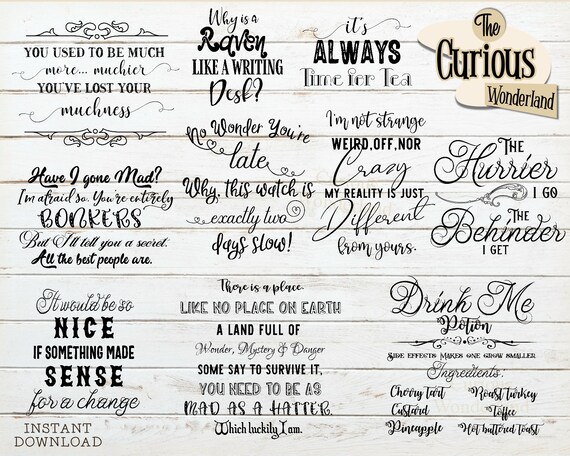 YOU USED TO BE MUCH
more... muchier
YOU'VE LOST YOUR
muchness
Why is a
Raven
LIKE A WRITING
Desk?
it's
ALWAYS
Time for Tea
The
Curious
Wonderland
Have I gone Mad?
I'm afraid so. You're entirely
BONKERS
But I'll tell you a secret.
All the best people are.
No Wonder You're
late
Why, this watch is
exactly two
days slow!
I'm not strange
WEIRD, OFF, NOR
Crazy
MY REALITY IS JUST
Different
from yours.
THE
Hurrier
I GO
THE
Behinder
I GET
It would be so
NICE
IF SOMETHING MADE
SENSE
for a change
There is a place.
LIKE NO PLACE ON EARTH
A LAND FULL OF
Wonder, Mystery & Danger
SOME SAY TO SURVIVE IT,
YOU NEED TO BE AS
MAD AS A HATTER.
Which luckily I am.
Drink Me
Potion
SIDE EFFECTS MAKES ONE GROW SMALLER
Ingredients:
Cherry Tart
Custard
Pineapple
Roast turkey
Toffee
Hot buttered toast
INSTANT
DOWNLOAD